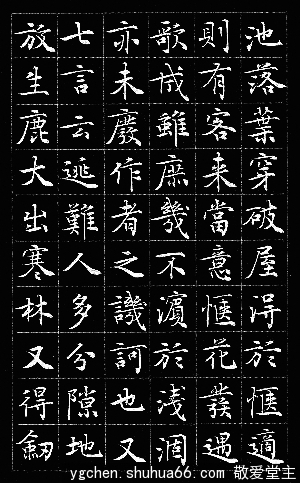 池落葉穿破屋淂於愜適
則有客来當意愜花發遇
歌成雖庶幾不濵於浅涸
亦未廢作者之譏訶也又
七言云逃難人多分隙地
放生鹿大出寒林又得劒
ygchen.shuhua66.com 敬爱堂主